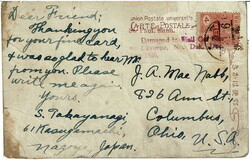 Dear Friend:
Thanking you
for your fine card,
& was so glad to hear
from you. Please
write me again.
Yours,
S. Takayanagi
Nagoya Japan.
Union Postale Universelle
CARTE POSTALE
St. Paul, Minn.
J. A. Mac Nabb,
826 Ann St
Columbus,
Ohio, U.S.A